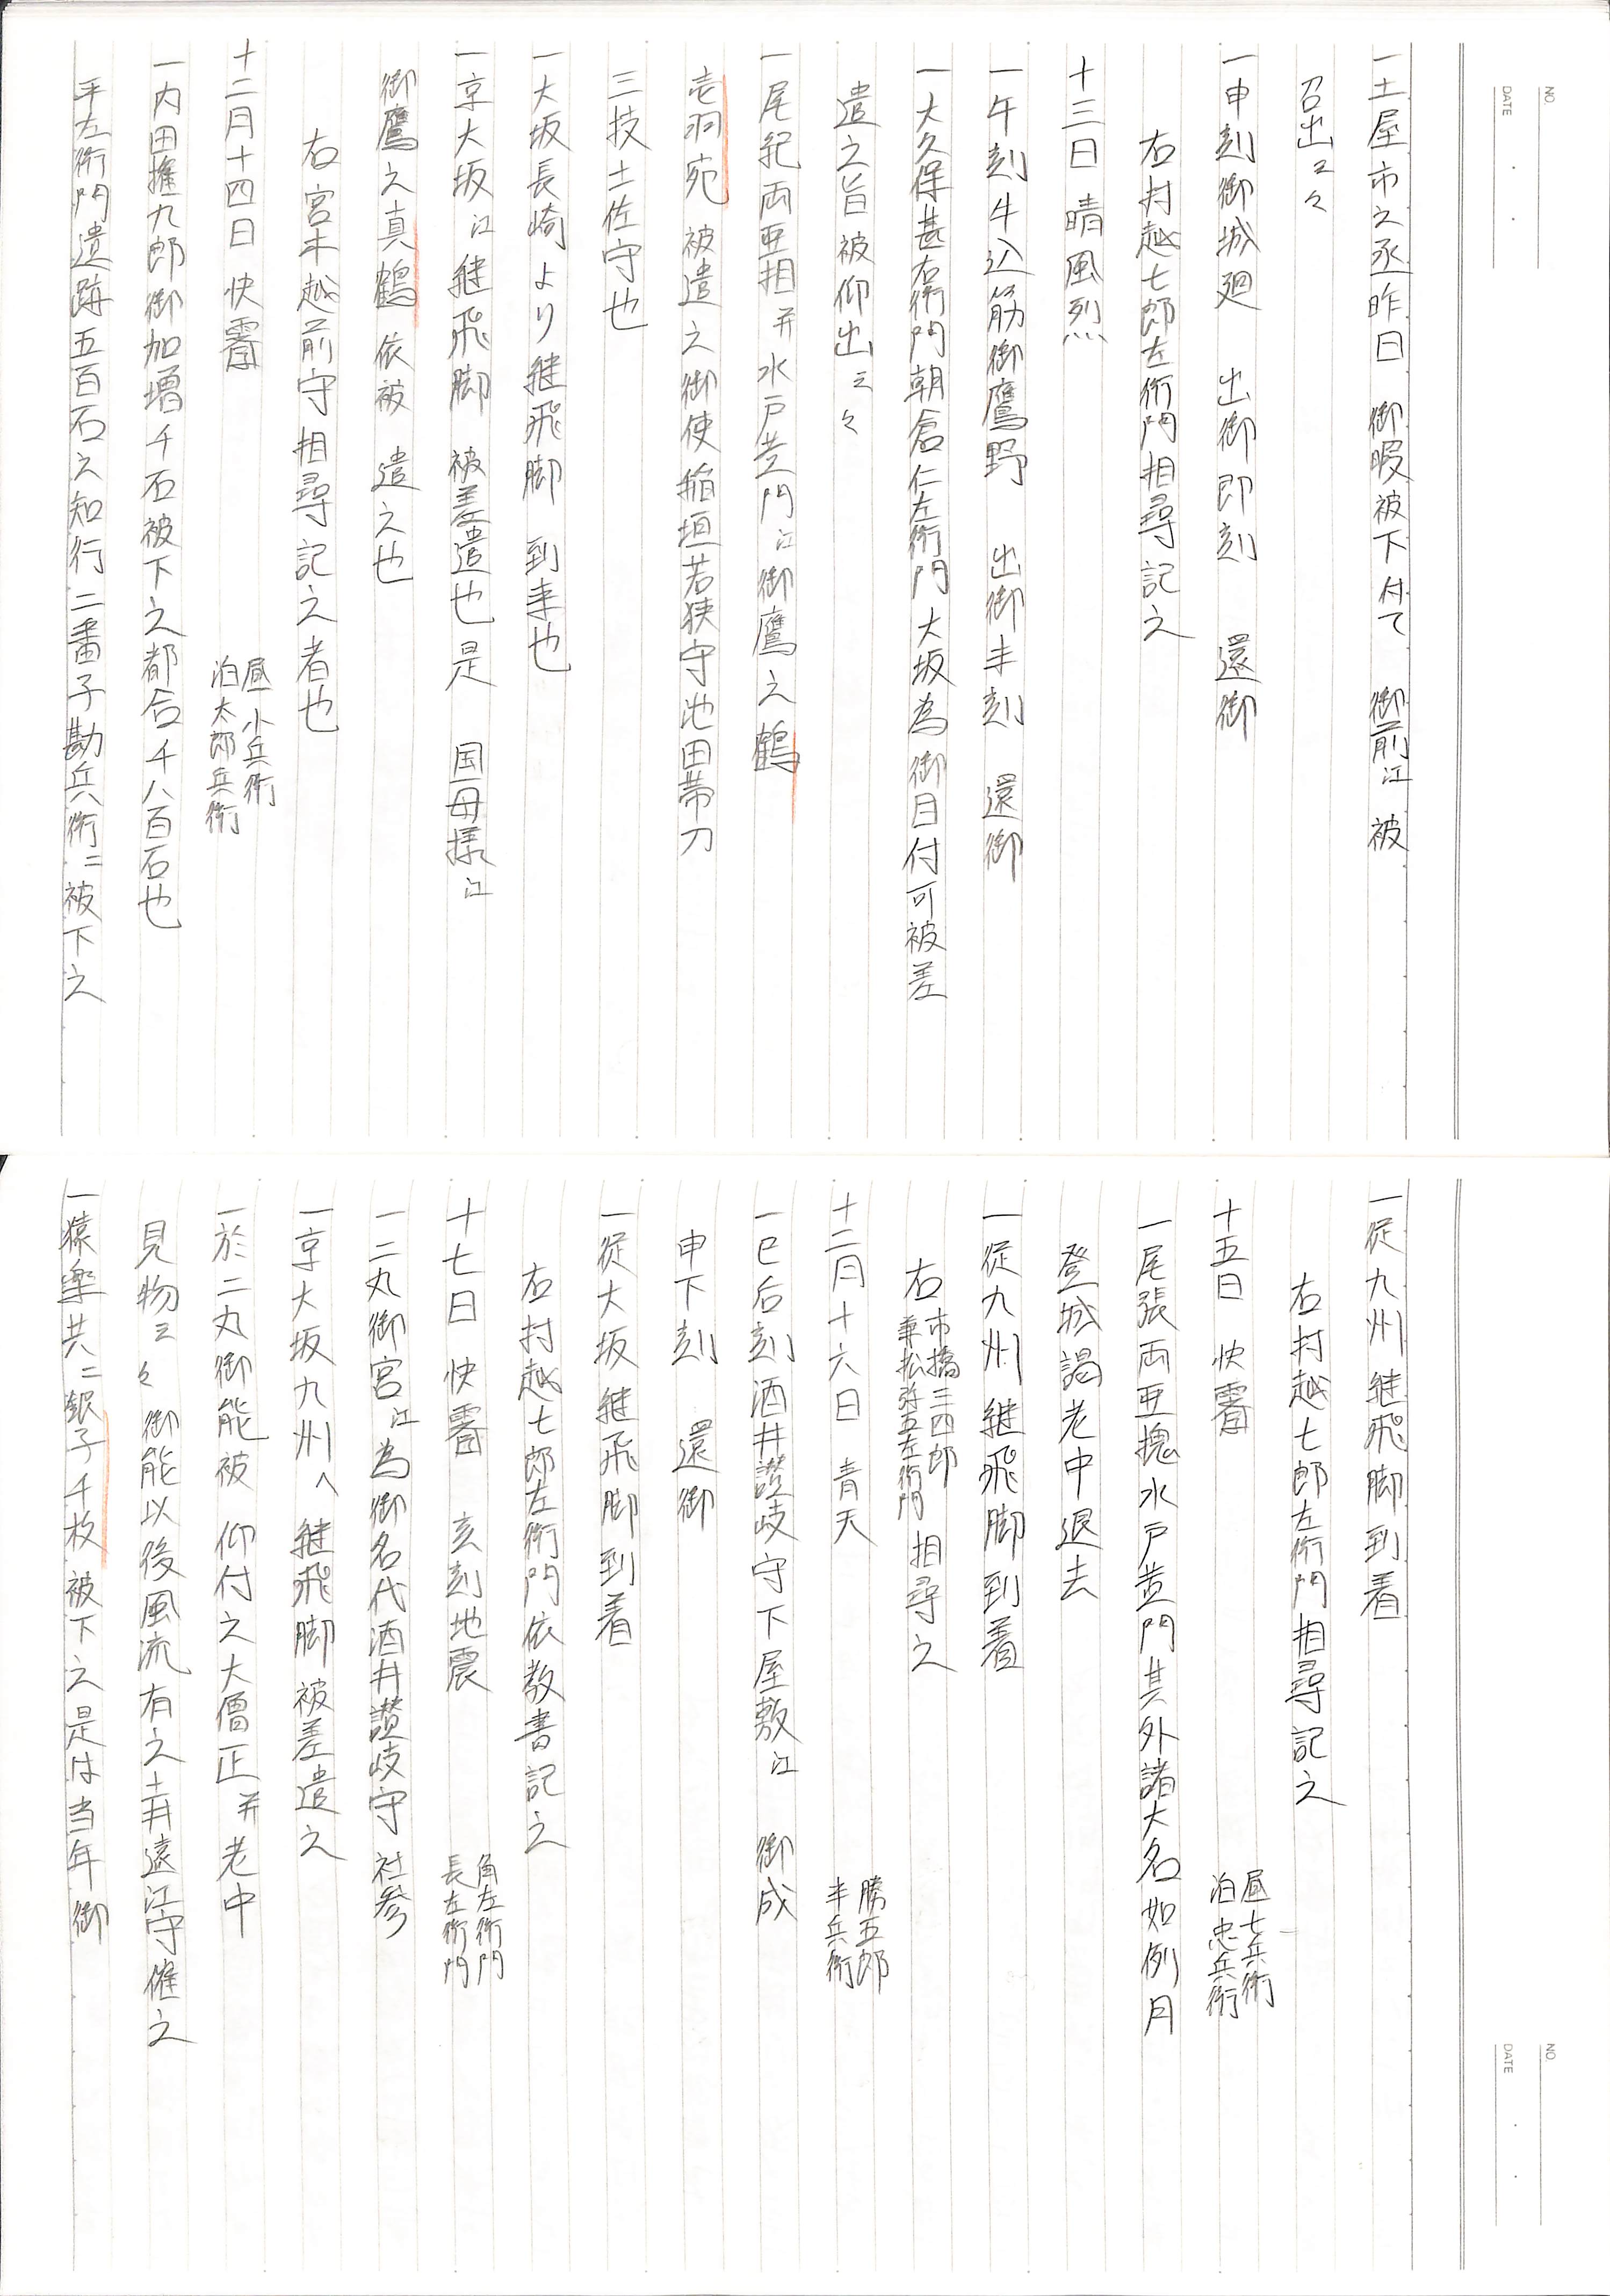 NO.
DATE
一土屋市之丞昨日 御暇被下付て 御前江 被
召出云々
一申刻御城廻 出御即刻 還御
右村越七郎左衛門相尋記之
十三日 晴風烈
一午刻牛込筋御鷹野 出御未刻 還御
一大久保甚右衛門朝倉仁左衛門大坂為御目付可被差
遣之旨被仰出云々
一尾紀両亜相并水戸黄門江御鷹之鶴
壱羽宛 被遣之御使稲垣若狭守池田帯刀
三枝土佐守也
一大坂長崎より継飛脚 到来也
一京大坂江継飛脚 被差遣也是 国母様江
御鷹之真鶴 依被 遣之也
右宮木越前守相尋記之者也
十二月十四日 快霽
昼 小兵衛
泊太郎兵衛
一内田権九郎御加増千石被下之都合千八百石也
平左衛門遺跡五百石之知行二番子勘兵衛ニ被下之
NO.
DATE
一従九州継飛脚到着
右村越七郎左衛門相尋記之
十五日 快霽
昼七兵衛
泊忠兵衛
一尾張両亜槐水戸黄門其外諸大名如例月
登城謁老中退去
一従九州継飛脚到着
右市橋三四郎
兼松弥五左衛門 相尋之
十二月十六日 青天
勝五郎
半兵衛
一巳后刻酒井讃岐守下屋敷江 御成
申下刻 還御
一従大坂継飛脚到着
右村越七郎左衛門依教書記之
十七日 快霽 亥刻地震
角左衛門
長左衛門
一二丸御宮江為御名代酒井讃岐守 社参
一京大坂九州へ 継飛脚被差遣之
一於二丸御能被 仰付之大僧正并老中
見物云々 御能以後風流有之土井遠江守催之
一猿楽共ニ銀子千枚被下之是は当年御